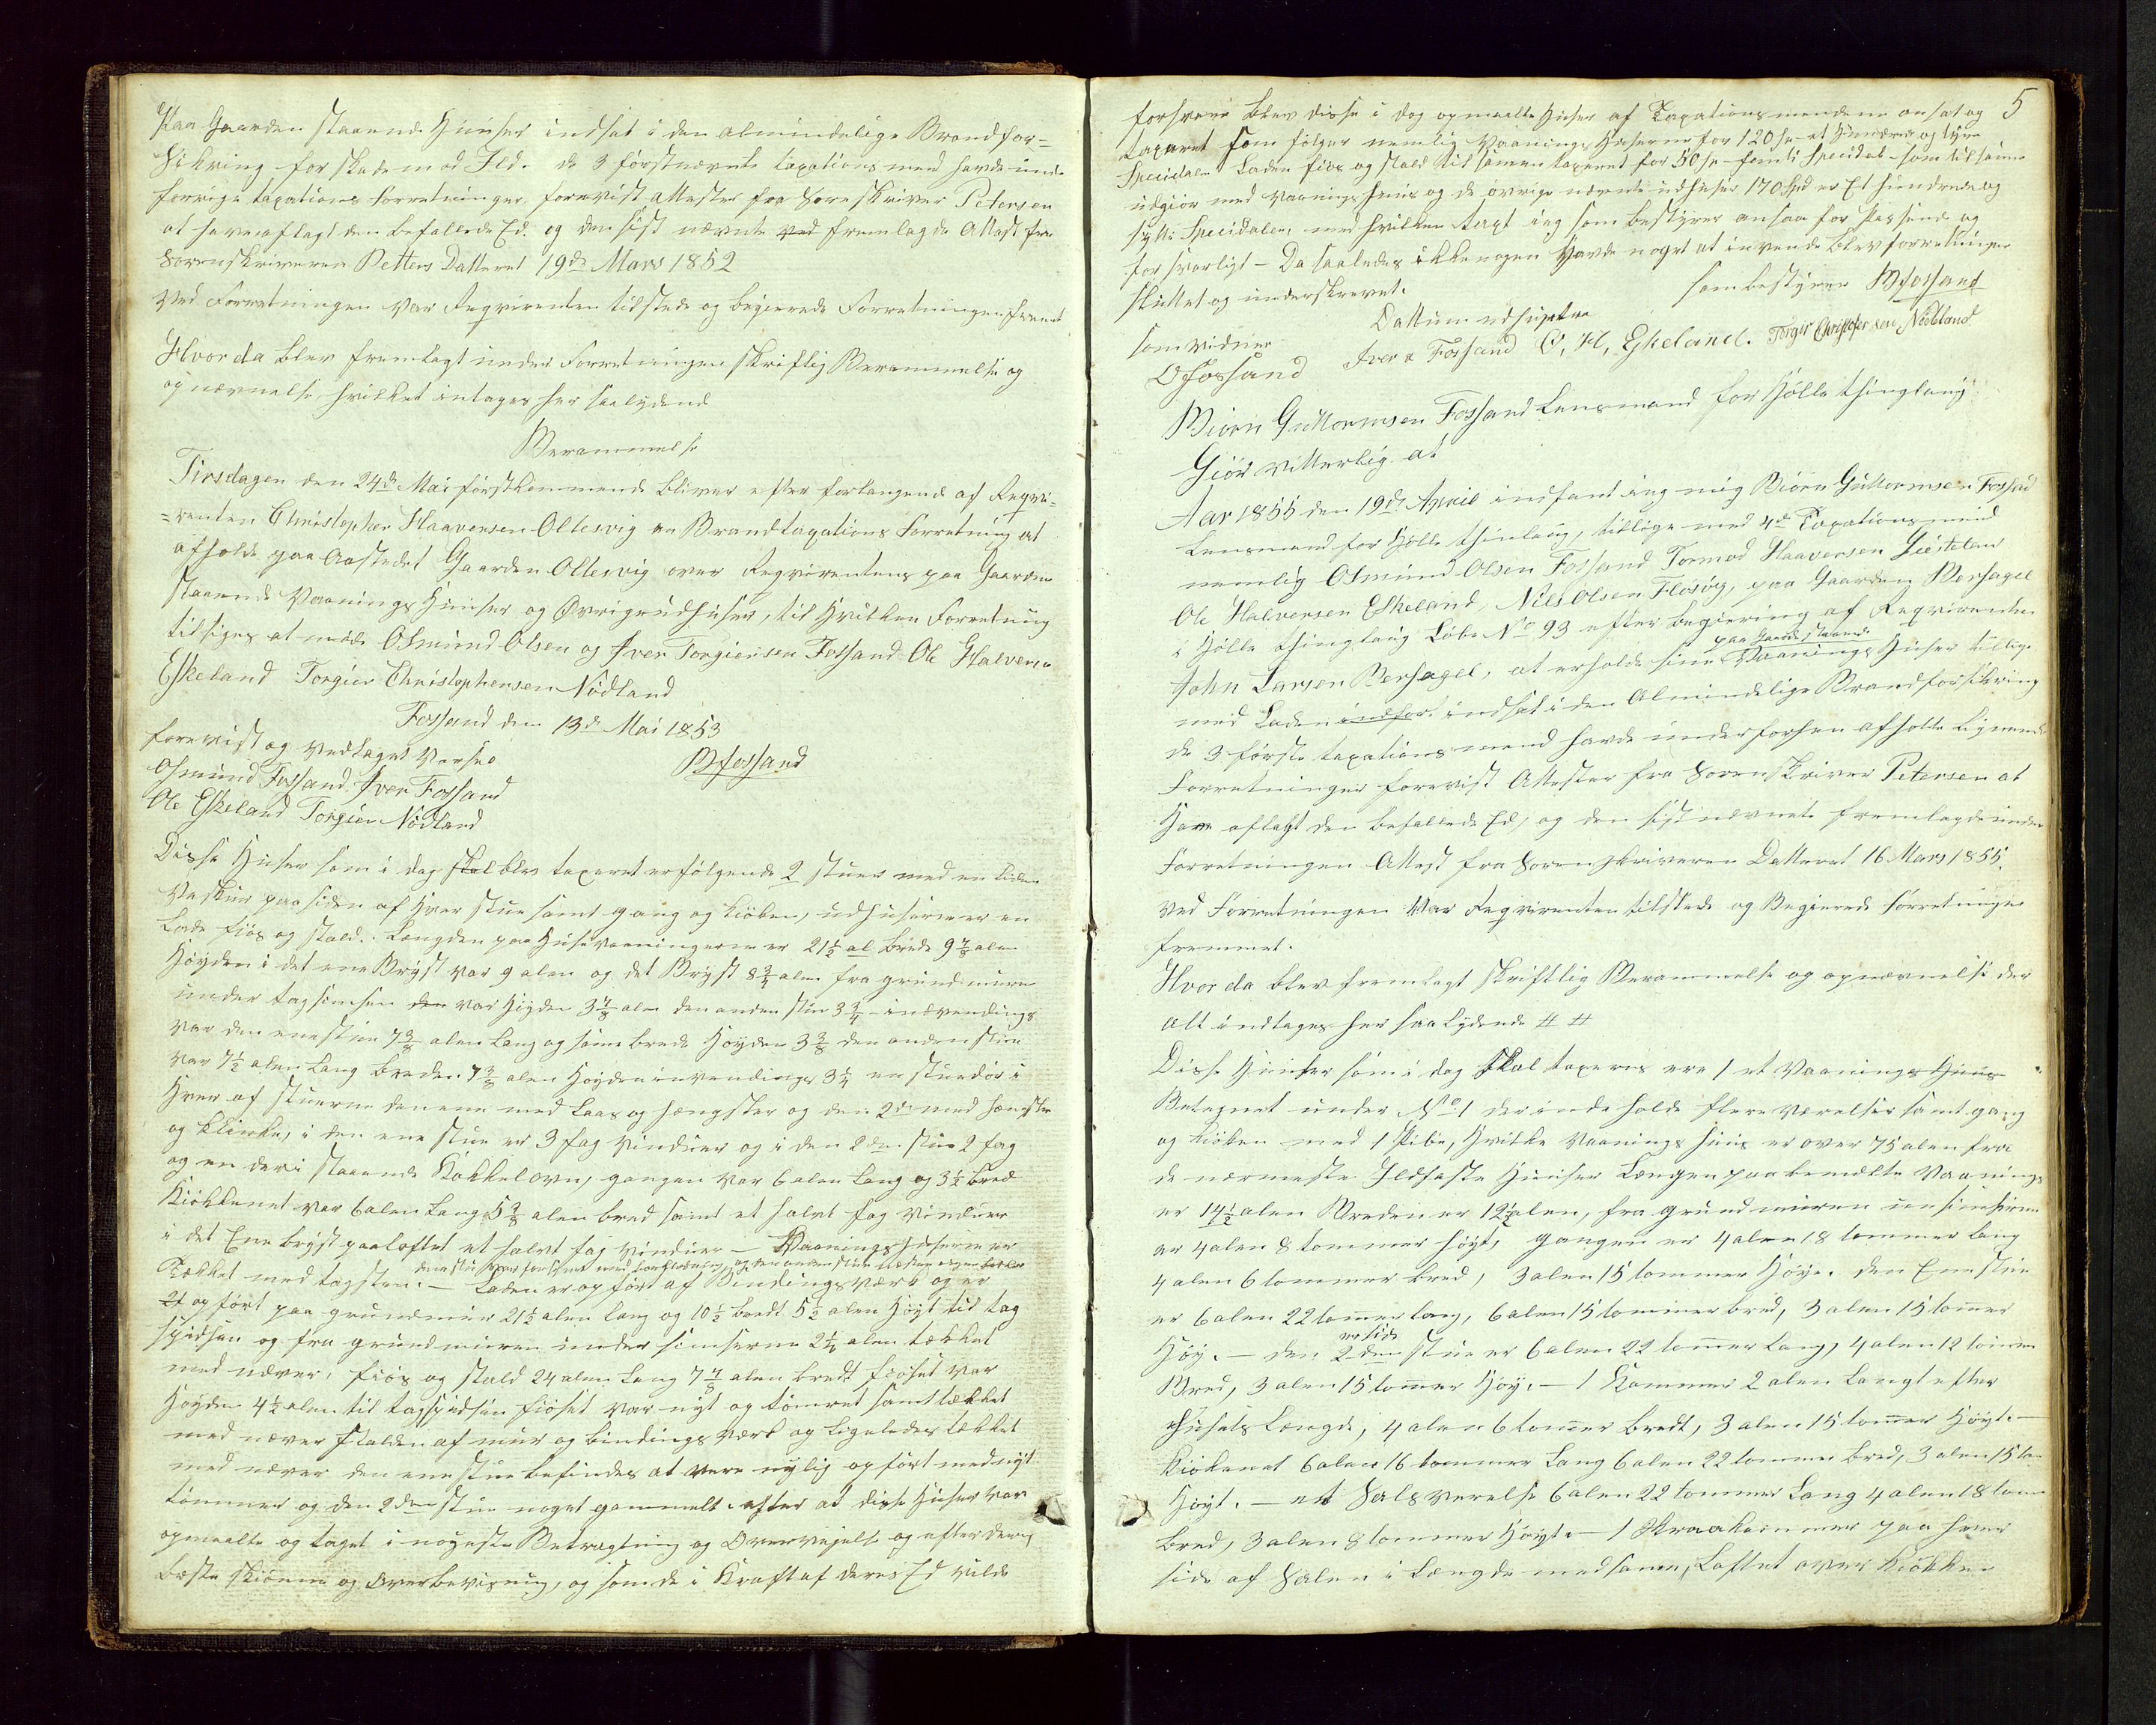 Paa Gaarden staaende Huuser indsat i den almindelige Brandfor=
sikring for skade med Ild. de 3 förstnævnte taxations mend havde unde
forrige taxations forretninger forevist attester fra Sorenskriver Petersen
at have aflagt den befallede Ed. og den sist nævnte ved fremlagde Attest fra
Sorenskriveren Petters Datteret 19de Mars 1852
Ved Forretningen var Reqvirenten tilstede og begierede Forretningen fremet
Hvor da blev fremlagt under Forretningen skriftlig Berammelse og
opnævnelse hvilket intages her saalydend
Berammelse
Tirsdagen den 24de Mai förstkommende bliver efter forlangende af Reqvi=
=renten Christopher Haavensen Oltesvig en Brandtaxations Forretning at
afholde paa Aastedet Gaarden Oltesvig over Reqvirentens paa Gaarden
staaende Vaanings Huuser og Øvrige udhuser, til hvilken Forretning
tilsiges at møde Osmund Olsen og Iver Torgiersen Fossand Ole Halvorse
Eskeland Torgier Christophersen Nödland
Fossand den 13de Mai 1853
forevist og vedtaget Varsel
BFossand
Osmund Fossand. Iver Fossand
Ole Eskeland Torgier Nödland
Disse Huser som i dag skal blev taxeret er følgende 2 stuer med en liden
Vaskuur paa siden af Hver stue samt gang og kiöken, udhuserne er en
Lade fiös og stald. Længden paa Huse vaaningerne er 21½ al brede 9⅞ alen
Høyden i det ene Bryst var 9 alen og det Bryst 8¾ alen fra grundmuren
under tagsimsen den var høyden 3⅞ alen den anden stue 3¾ - indvendings
var den ene stue 7⅜ alen lang og samme brede Høyden 3⅜ den anden stue
var 7½ alen lang breden 7⅜ alen Høyden invendings 3¼ en stuedör i
Hver af stuerne den ene med Laas og hængsler og den 2de med hængsler
og klinke, i den ene stue er 3 fag vinduer og i den 2den stue 2 fag
og en deri staaende Kakkelovn, gangen var 6 alen lang og 3½ bred
Kiökkenet var 6 alen lang 5⅜ alen bred samt et halvt fag vinduer
i det Ene bryst paaloftet et halvt fag vinduer — Vaaningshuserne er
Tækket med tagsten. — Laden er op ført af Bindingsværk og er
21 op ført paa grundmuur 21½ alen lang og 10½ bredt 5½ alen Høyt til tag
spidsen og fra grundmuren under simserne 2¼ alen tækket
med næver, fiös og stald 24 alen lang 7⅞ alen bredt fiöset var
Høyden 4½ alen til tagspidsen fiöset var nyt og tömret samt tækket
med næver stalden af mur og bindings verk og ligeledes tækket
med næver den ene stue befindes at være nylig op ført med nyt
tömmer og den 2den stue noget gammelt. efter at disse Huser var
opmaalte og taget i nöyeste Betragtning og Overveielse og efter deres
beste skiönne og Overbevisning, og som de i Kraft af deres Ed vilde
5
forsvare blev disse i dag opmaalte Huser af Taxationsmendene ansat og
taxeret som følger nemlig Vaanings Huserne for 120 sp et hundrede og tyve
Specidaler Laden fiös og stald til samen taxeret for 50 sp femti Specidal som tilsamen
udgiör med vaaningshuus og de øvrige nævnte udhuser 170 Spd er Et hundrede og
sytti Specidaler, med hvilken taxt ieg som bestyrer ansaa for passende og
forsvarligt — Da saaledes ikke nogen havde noget at invende blev forretningen
sluttet og underskrevet.
som bestyrer BFossand
Dattum udsupra
som vidner
OFossand Iver x Fossand O, H, Eskeland. Torger Christofersen Nödland
Biörn Guttormsen Fossand Lensmand for Hölle thinglaug
Giör vitterlig at
Aar 1855 den 19de April indfant ieg mig Biörn Guttormsen Fossand
Lensmand for Hölle thinlaug, tillige med 4de Taxationsmend
nemlig Osmund Olsen Fossand Tormod Haavensen Giestelan
Ole Halvorsen Eskeland, Nils Olsen Flosög, paa Gaarden Bersagel
i Hölle thinglaug Löbe No 93 efter begiering af Reqvirenten
paa Gaarde staaende
John Larsen Bersagel, at erholde sine Vaanings Huser tillige
med Laden indfor indsat i den Almindelige Brandforsikring
de 3 förste taxations mend havde under forhen afholte lignende
Forretninger forevist Attester fra Sorenskriver Petersen at
Have aflagt den befallede Ed, og den sist nævnte fremlagde under
Forretningen Attest fra Sorenskriveren Datteret 16 Mars 1855.
Ved Forretningen var Reqvirenten tilstede og Begierede Forretningen
fremmet.
Hvor da blev fremlagt skriftlig Berammelse og opnævnelse der
alt indtages her saa lydende # #
Disse Huuser som i dag skal taxeres ere 1 et Vaanings Huus
Betegnet under No 1 der inde holde flere værelser samt gang
og kiöken med 1 Pibe, Hvilke Vaanings Huus er over 75 alen fra
de nærmeste Ildfaste Huuser Længen paa bemælte Vaaning
er 14½ alen Breden er 12½ alen, fra grundmuren un simserne
er 4 alen 8 tommer høyt, gangen er 4 alen 18 tommer lang
4 alen 6 tommer bred, 3 alen 15 tommer Høye. den Ene stue
er 6 alen 22 tommer lang, 6 alen 15 tommer bred, 3 alen 15 tommer
Høy. — den 2den stue er 6 alen 22 tommer lang, 4 alen 12 tommer
Bred, 3 alen 15 tommer Høy. — 1 Kammer 2 alen Langt efter
Husets Længde, 4 alen 6 tommer bredt, 3 alen 15 tommer Høyt. —
Kiökenet 6 alen 16 tommer Lang 6 alen 22 tommer bred, 3 alen 15 to
Høyt. — et Sals verelse 6 alen 22 tommer Lang 4 alen 18 tom
bred, 3 alen 8 tommer Høyt. — 1 Kraakammer paa hver
side af Salen i Længde med samme, Loftet over Kiökken